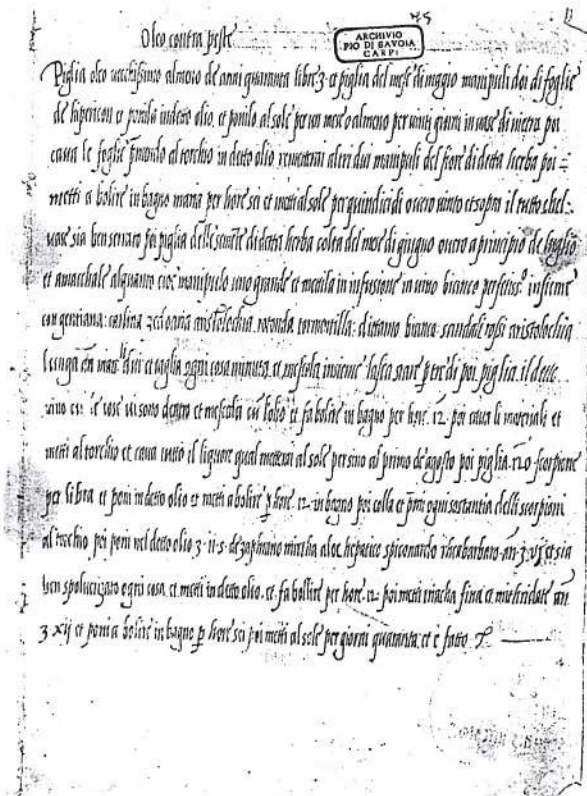 Oleo contra peste
ARCHIVIO
PIO DI SAVOIA
CARPI
Piglia oleo vecchissimo almeno de anni quaranta libre 3 et piglia del mese di maggio manipuli doi di foglie
de hipericon et ponila indetto olio, et ponilo al sole per un mese o almeno per vinti giorni in vaso di vitro, poi
cava le foglie al torchio in detto olio altri dui manipuli del fiore di detta herba poi
metti a bolire in bagno maria per hore sei et metti al sole per quindici di overo vinto et sopra il tutto chel
vaso sia ben serrato poi piglia delle semete di detta herba colta del mese di giugno overo a principio de luglio
et amacchale alquanto cioe manipulo uno grande et mettila in infusione in vino bianco insieme
con gentiana: carlina zedoaria aristolochia rotonda tormentilla: dittamo bianco sandali rossi aristolochia
longa et taglia ogni cosa minuta et mescola insieme lassa stare tre di poi piglia il detto
vino cu le cose vi sono dentro et mescola cu lolio et fa bolire in bagno per hore 12 poi cava li materiali et
metti al torchio et cava tutto il liquore qual metterai al sole persino al primo de agosto poi piglia 120 scorpione
per libra et poni in detto olio et metti a bolire p hore 12 in bagno poi colla et ogni sostantia delli scorpioni
al torchio poi poni nel detto olio de zaphrano mirrha aloe hepatico spiconardo rheobarbaro an 3 vj et sia
ben spolverizato ogni cosa et metti in detto olio et fa bollire per hore 12 poi metti triacha fina et mithridate an
3 xij et poni a bolire in bagno p hore sei poi metti al sole per giorni quaranta et è fatto